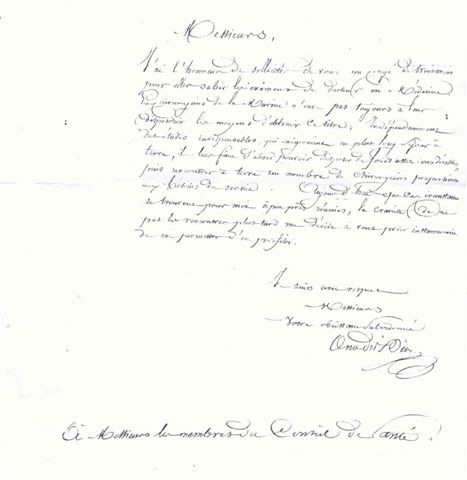 Messieurs,
J'ai l'honneur de solliciter de vous un congé de trois mois
pour aller subir les examens de docteur en Médecine
Les chirurgiens de la Marine n'ont pas toujours à leur
disposition les moyens d'obtenir ce titre. Indépendamment
des études indispensables, qui exigeraient un plus long séjour à
terre, il leur faut d'abord pouvoir disposer de fonds assez considérables,
puis rencontrer à terre un nombre de chirurgiens proportionné
aux besoins du service. Aujourd'hui que ces circonstances
se trouvent pour moi à peu près réunies, la crainte de ne
pas les rencontrer plus tard me décide à vous prier instamment
de me permettre d'en profiter.
Je suis avec respect
Messieurs
Votre obéissant subordonné
À Messieurs les membres du Conseil de santé.